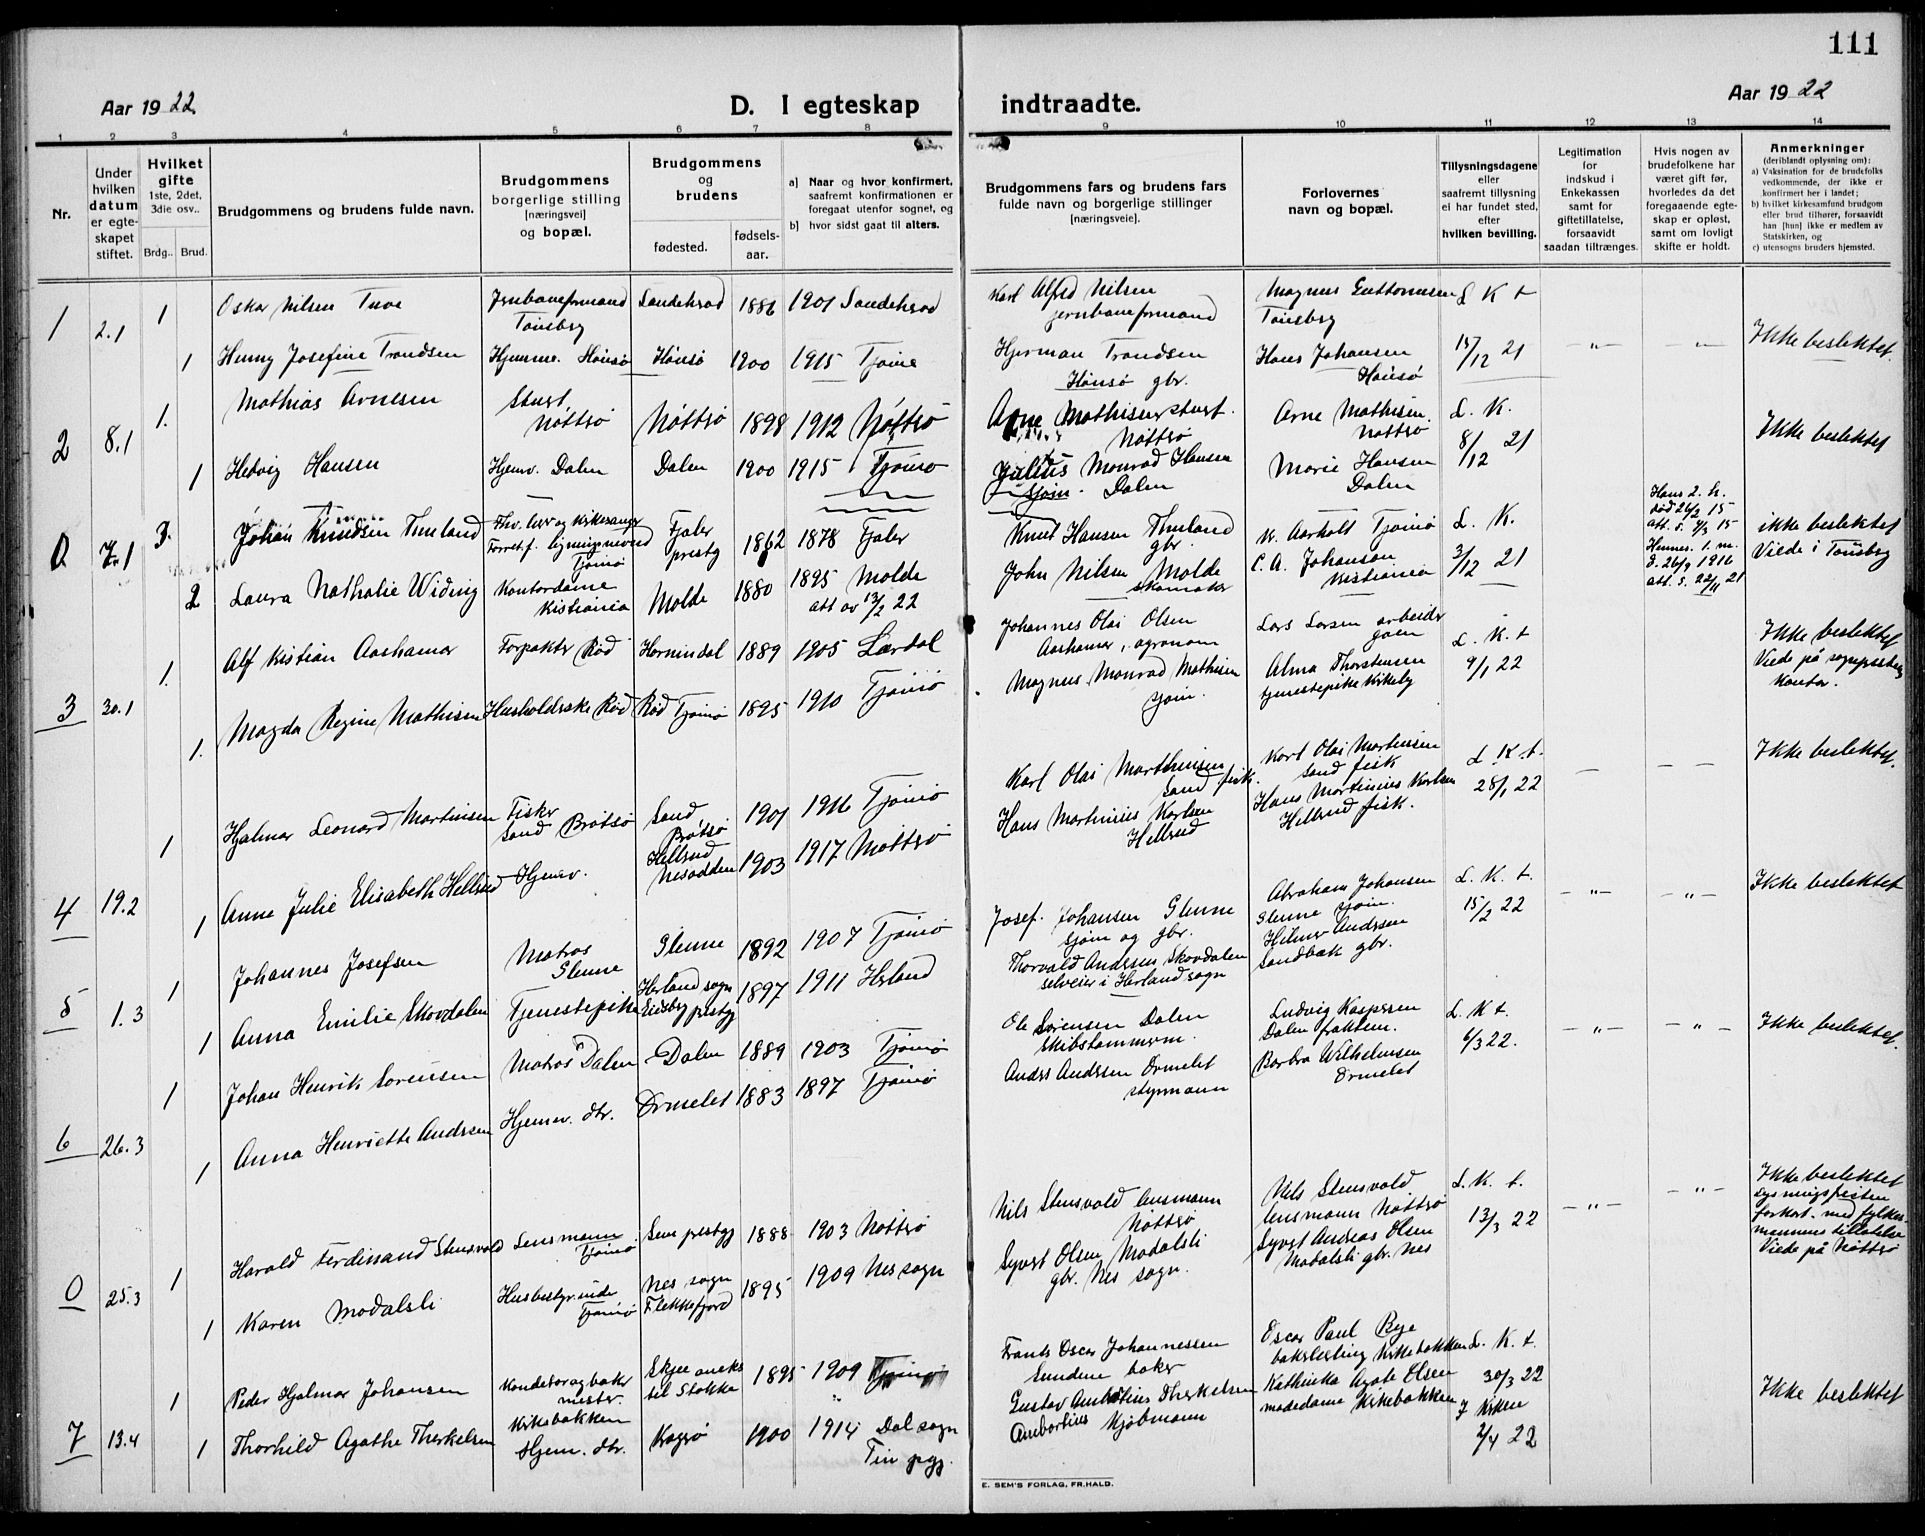 111
Aar 1922
D. I egteskap indtraadte.
Aar 1922
1 2 3 4 5 6 7 8 9 10 11 12 13 14
Nr.
Under hvilken datum er egte-skapet stiftet.
Hvilket gifte
1ste, 2det, 3die osv..
Brdg.. Brud.
Brudgommens og brudens fulde navn.
Brudgommens borgerlige stilling [næringsvei] og bopæl.
Brudgommens og brudens
fødested.
fødsels-aar.
a) Naar og hvor konfirmert, saafremt konfirmationen er foregaat utenfor sognet, og
b) hvor sidst gaat til alters.
Brudgommens fars og brudens fars fulde navn og borgerlige stillinger [næringsveie].
Forlovernes navn og bopæl.
Tillysningsdagene eller saafremt tillysning ei har fundet sted, efter hvilken bevilling.
Legitimation for indskud i Enkekassen samt for giftetillatelse, forsaavidt saadan tiltrænges.
Hvis nogen av brudefolkene har været gift før, hvorledes da det foregaaende egte-skap er opløst, samt om lovligt skifte er holdt.
Anmerkninger
(deriblandt oplysning om):
a) Vaksination for de brudefolks vedkommende, der ikke er konfirmert her i landet;
b) hvilket kirkesamfund brudgom eller brud tilhører, forsaavidt han [hun] ikke er medlem av Statskirken, og
c) utensogns bruders hjemsted.
1 2.1 1 Oskar Nilsen Tuve Jernbaneformand Tønsberg Sandeherad 1886 1901 Sandeherad Karl Alfred Nilsen jernbaneformand Magnus Guttormsen Tønsberg L K t
1 Henny Josefine Trondsen Hjemme. Hønsø Hønsø 1900 1915 Tjøme Hjerman Trondsen Hønsø gbr. Hans Johansen Hønsø 15/12 21 -"- -"- Ikke beslektet.
2 8.1 1. Mathias Arnesen Nøtterø Nøtterø 1898 1912 Nøtterø Arne Mathisen Nøtterø Arne Mathisen Nøtterø L. K.
1 Hedvig Hansen Hjemv. Dalen Dalen 1900 1915 Tjømø Julius Monrad Hansen sjøm. Dalen Marie Hansen Dalen 8/12 21 Ikke beslektet
0 7.1 3. Johan Knudsen Timland Fhv. lærer og kirkesanger Forret.f. ligningsnevnd Tjømø Fjaler prestg 1862 1878 Fjaler Knut Hansen Timland gbr. N. Aarholt Tjømø L. K. Hans 2. h. død 26/2 15 att. s. 4/3 15 ikke beslektet
2 Laura Nathalie Widing Kontordame Kristiania Molde 1880 1895 Molde att av 13/2 22 John Nilsen Molde skomaker C. A. Johansen Kristiania 3/12 21 Hennes. 1. m. d. 26/9 1916 att. s. 22/11 21 Viede i Tønsberg
3 30.1 1. Alf Kristian Aashamar Forpakter Rød Hornindal 1889 1905 Lærdal Johannes Olai Olsen Aashamar, agronom Lars Larsen arbeider L. K. t Ikke beslektet
1. Magda Regine Mathisen Husholderske Rød Rød Tjømø 1895 1910 Tjømø Magnus Monrad Mathisen sjøm. Alma Thorstensen tjenestepike Kirkeby 9/1 22 Viede på sogneprestens kontor.
4 19.2 1 Hjalmar Leonard Martinsen Fisker Sand Brøtsø Sand Brøtsø 1901 1916 Tjømø Karl Olai Marthinsen Sand fisk. Karl Olai Martinsen Sand fisk L. K t.
1 Anne Julie Elisabeth Hellrud Hjemv. Hellrud Nesodden 1903 1917 Nøtterø Hans Martinius Karlsen Hellrud Hans Martinius Karlsen Hellrud fisk. 28/1 22 - - Ikke beslektet.
5 1.3 1 Johannes Josefsen Matros Glenne Glenne 1892 1907 Tjømø Josef. Johansen Glenne sjøm og gbr. Abraham Johansen Glenne sjøm. L. K. t.
1 Anna Emilie Skovdalen Tjenestepike Herland sogn Eidsberg prestgj 1897 1911 Herland Thorvald Andersen Skovdalen selveier i Herland sogn Hilmer Andersen Sandbæk gbr. 15/2 22 -"- -"- Ikke beslektet
6 26.3 1 Johan Henrik Sørensen Matros Dalen Dalen 1889 1903 Tjømø Ole Sørensen Dalen skibstømmerm. Ludvig Kaspersen Dalen L. K t.
1 Anna Henriette Andersen Hjemv. dtr. Ormelet 1883 1897 Tjømø Anders Andersen Ormelet styrmann Barbra Wilhelmsen Ormelet 6/3 22. -"- -"- Ikke beslektet.
0 25.3 1 Harald Ferdinand Stensvold Lensmann Tjømø Sem prestgj 1888 1903 Nøtterø Nils Stensvold lensmann Nøtterø Nils Stensvold lensmann Nøtterø L. K. t. Ikke beslektet
1 Karen Modalsli Husbestyrinde Tjømø Nes sogn Flekkefjord 1895 1909 Nes sogn Syvert Olsen Modalsli gbr. Nes sogn. Syvert Andreas Olsen Modalsli gbr. Nes 13/3 22 -"- -"- Lysningsfristen forkort. med fylkesmannens tillatelse Viede på Nøtterø
7 13.4 1 Peder Hjalmar Johansen Konditor og baker mester. Kirkebakken Skjee aneks til Stokke 1895 1909 Frants Oscar Johannessen Sundene baker Oscar Paul Bye bakerlerling Kirkebakken L. K. t.
1 Thorhild Agathe Therkelsen Hjem. dtr. Kragerø 1900 1914 Dal sogn Tin pgj. Gustav Ambortius Therkelsen Ambortius Kjøbmann Kathinka Agate Olsen modedame Kirkebakken 30/3 22 I Kirken 2/4 22 Ikke beslektet
E. SEM'S FORLAG, FR.HALD.